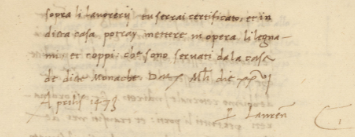 sopra li lavorerij tu serrai certificato, et in
dicta casa potrai mettere in opera li legna-
mi et coppi, che sono servati da la casa
de dicte Monache. Dat. Mli die xxvi
Aprilis 1473
Lauren